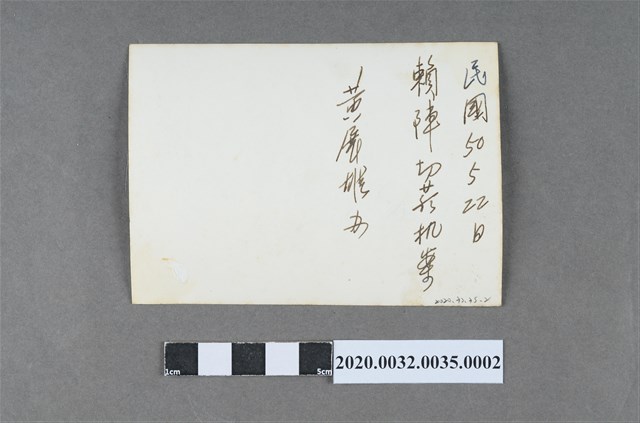 民國50 5 22日
賴陣切菸机業
黃展雄 女
2020.32.35-2
1cm
5cm
2020.0032.0035.0002